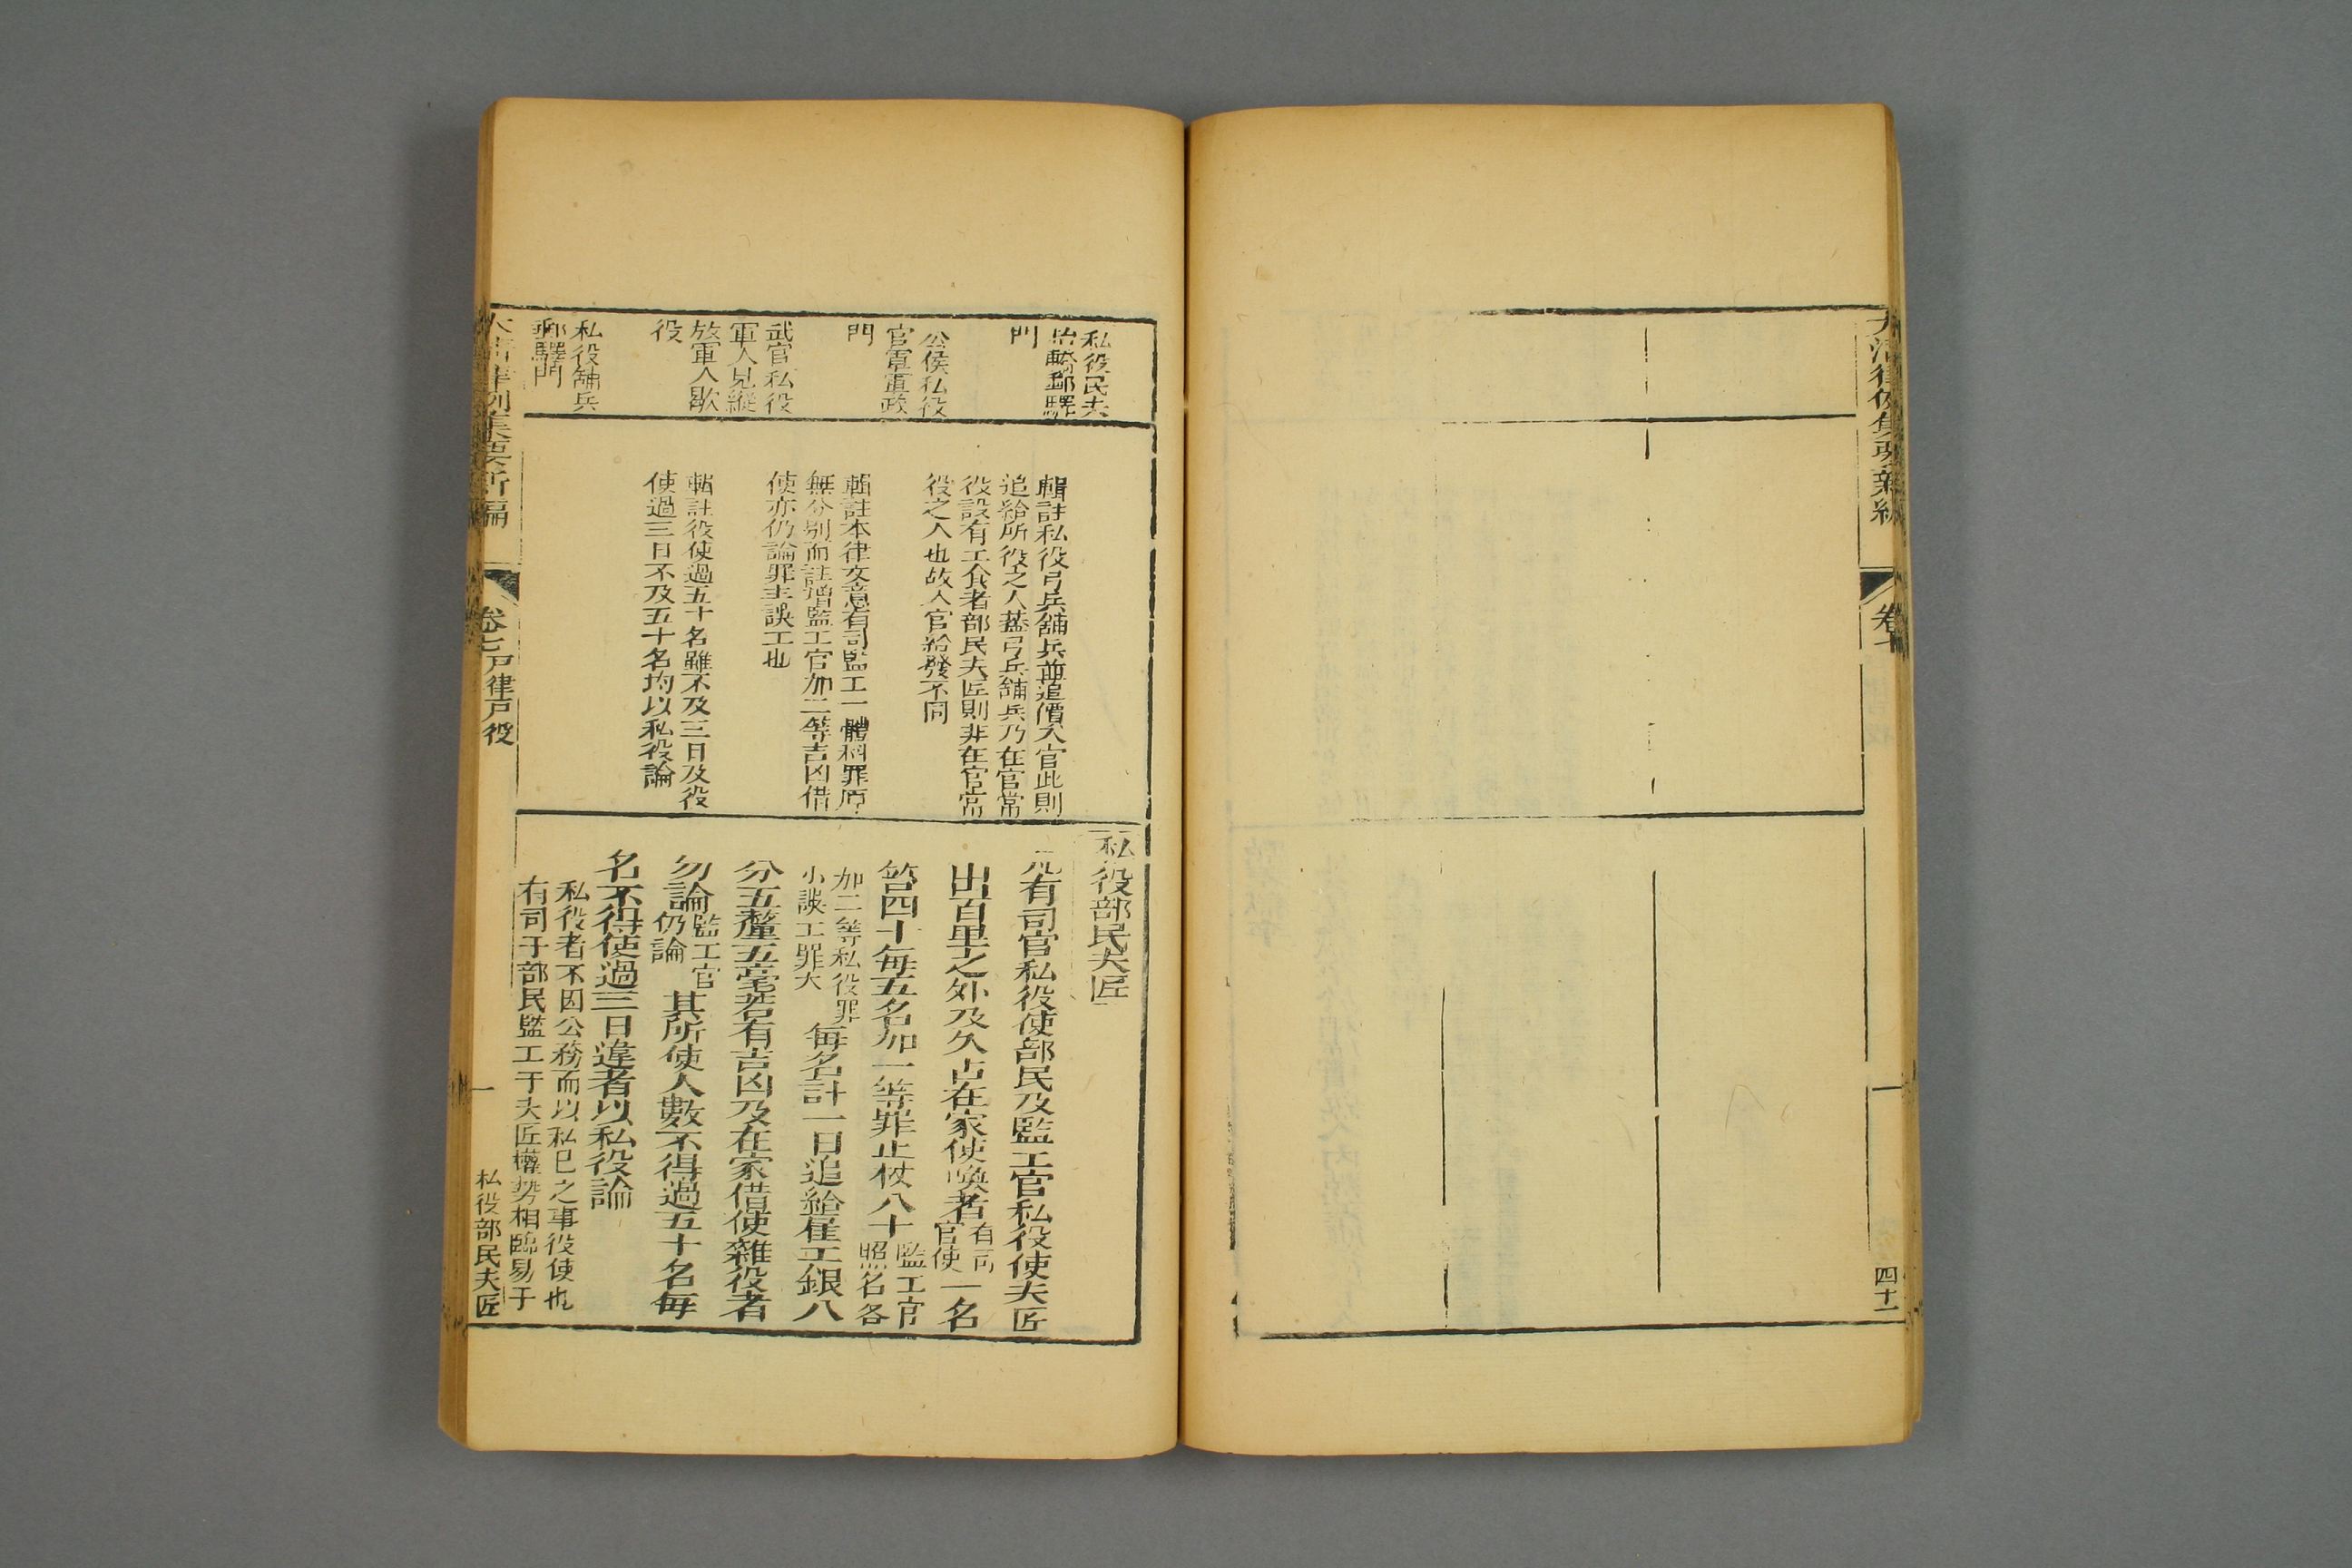 大清律例集要新編
卷七
四十一
私役民夫
擡轎郵驛
門
公侯私役
官軍軍政
門
武官私役
軍人見縱
放軍人歇
役
私役舖兵
郵驛門
輯註私役弓兵舖兵並追價入官此則
追給所役之人葢弓兵舖兵乃在官當
役設有工食者部民夫匠則非在官當
役之人也故入官給發不同
輯註本律文意有司監工一體科罪原
無分别而註增監工官加二等吉凶借
使亦仍論罪主誤工也
輯註役使過五十名雖不及三日及役
使過三日不及五十名均以私役論
私役部民夫匠
一凡有司官私役使部民及監工官私役使夫匠
出百里之外及久占在家使喚者有司官使一名
笞四十每五名加一等罪止杖八十監工官照名各
加二等私役罪小誤工罪大每名計一日追給雇工銀八
分五釐五毫若有吉凶及在家借使雜役者
勿論監工官仍論其所使人數不得過五十名每
名不得使過三日違者以私役論
私役者不因公務而以私已之事役使也
有司于部民監工于夫匠權勢相臨易于
大清律例集要新編
卷七戸律戸役
私役部民夫匠